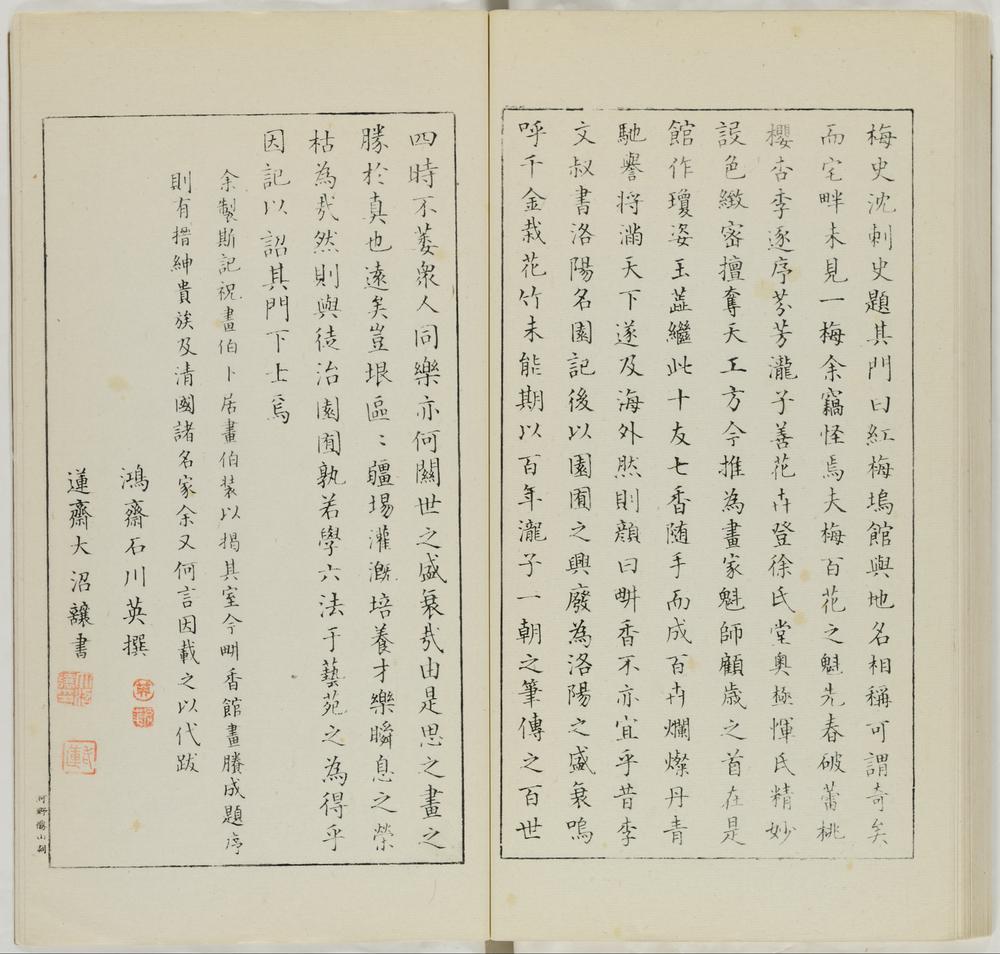 梅史沈刺史題其門曰紅梅塢館與地名相稱可謂奇矣
而宅畔未見一梅余竊怪焉夫梅百花之魁先春破蕾桃
櫻杏李逐序芬芳瀧子善花卉登徐氏堂奥極惲氏精妙
設色緻密擅奪天工方今推為畫家魁師顧歳之首在是
館作瓊姿玉蕋繼此十友七香随手而成百卉爛燦丹青
馳譽将滿天下遂及海外然則顔曰畊香不亦宜乎昔李
文叔書洛陽名園記後以園圃之興廢為洛陽之盛衰嗚
呼千金栽花竹未能期以百年瀧子一朝之筆傳之百世
四時不萎衆人同樂亦何關世之盛衰㢤由是思之畫之
勝於真也遠矣豈垠區〻疆埸灌漑培養才樂瞬息之榮
枯為㢤然則與徒治園囿孰若學六法于藝苑之為得乎
因記以詔其門下士焉
余製斯記祝畫伯卜居畫伯装以揭其室今畊香館畫賸成題序
則有搢紳貴族及清國諸名家余又何言因載之以代跋
鴻齋石川英撰
蓮齋大沼讓書